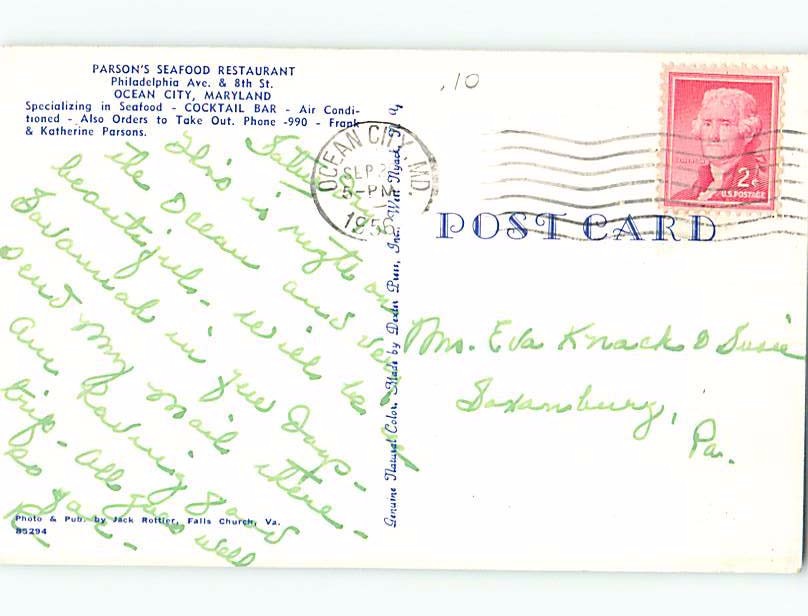 PARSON'S SEAFOOD RESTAURANT
Philadelphia Ave. & 8th St.
OCEAN CITY, MARYLAND
Specializing in Seafood - COCKTAIL BAR - Air Condi-
tioned - Also Orders to Take Out. Phone -990 - Frank
& Katherine Parsons.
This is right on
the Ocean and very
beautiful - will be
Savannah in few days -
send my mail there -
am having good
trip - all goes well
so far -
Photo & Pub. by Jack Rottier, Falls Church, Va.
85294
Genuine Natural Color, Made by Dexter Press, Inc., West Nyack, N. Y.
.10
OCEAN CITY, MD.
SEP
5-PM
195
2¢
U.S. POSTAGE
POST CARD
Mrs. Eva Knack & Susie
Saxonburg,
Pa.